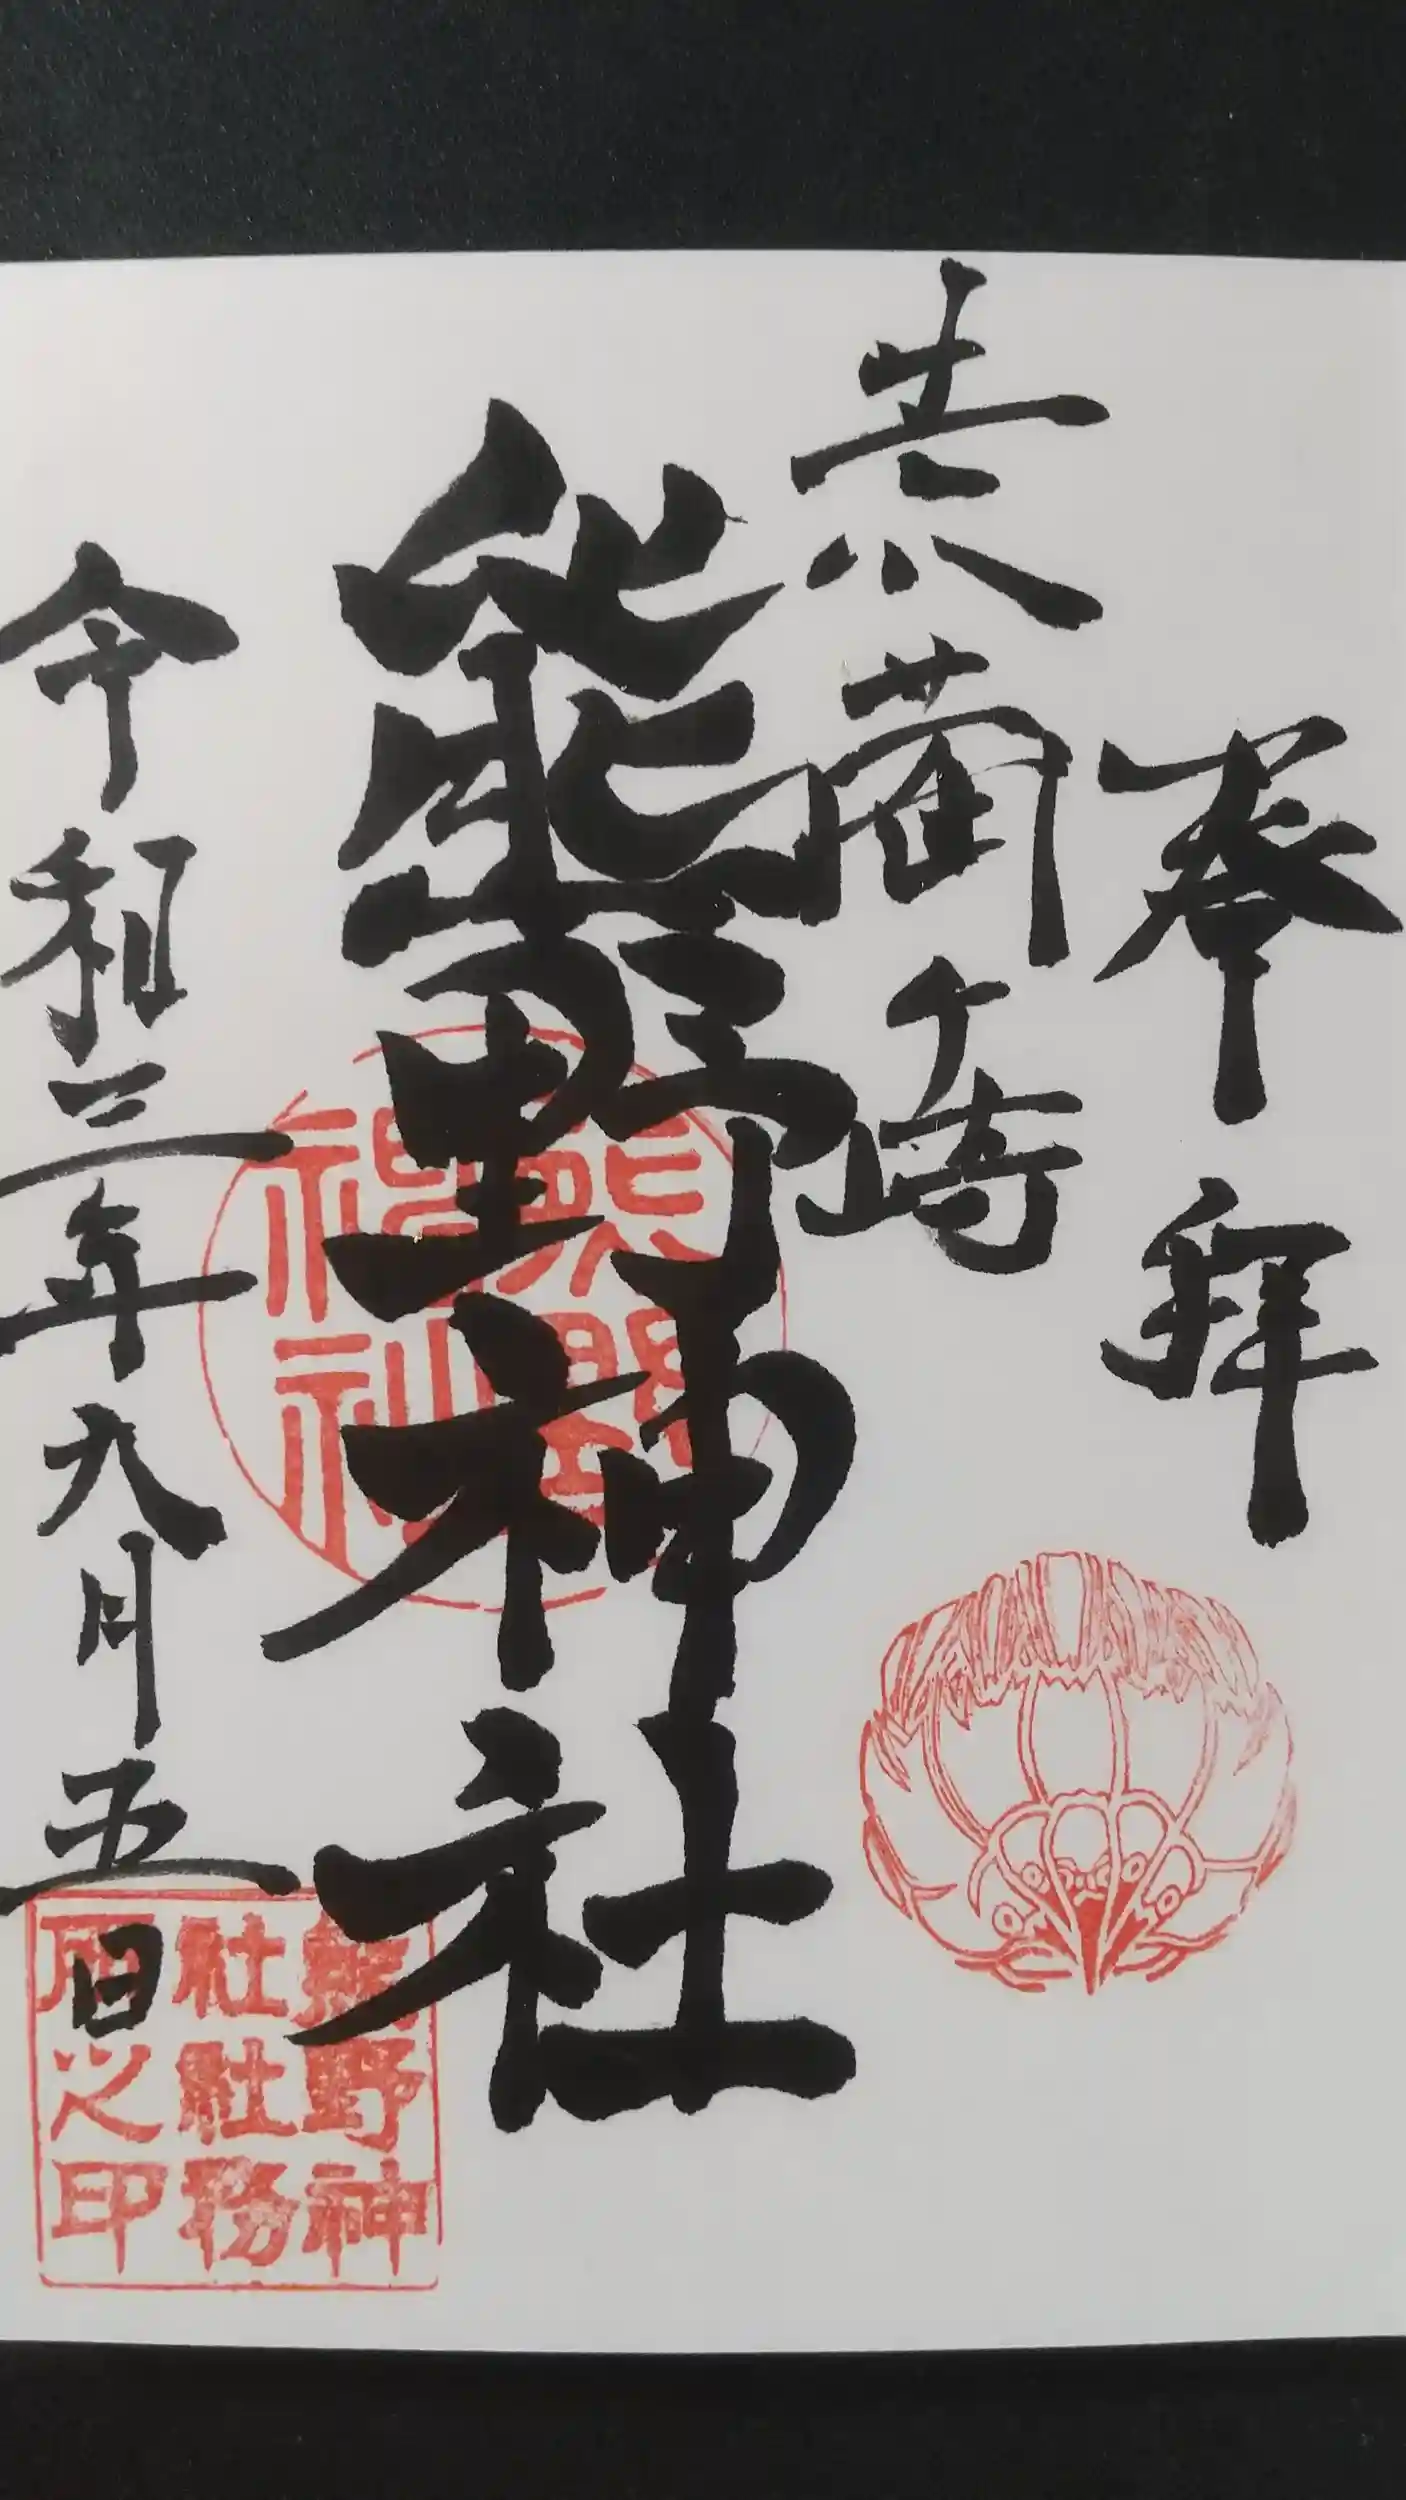 奉拝
ヶ崎
熊野神社
令和三年九月五日
熊野
神社
熊野神
社社務
所之印